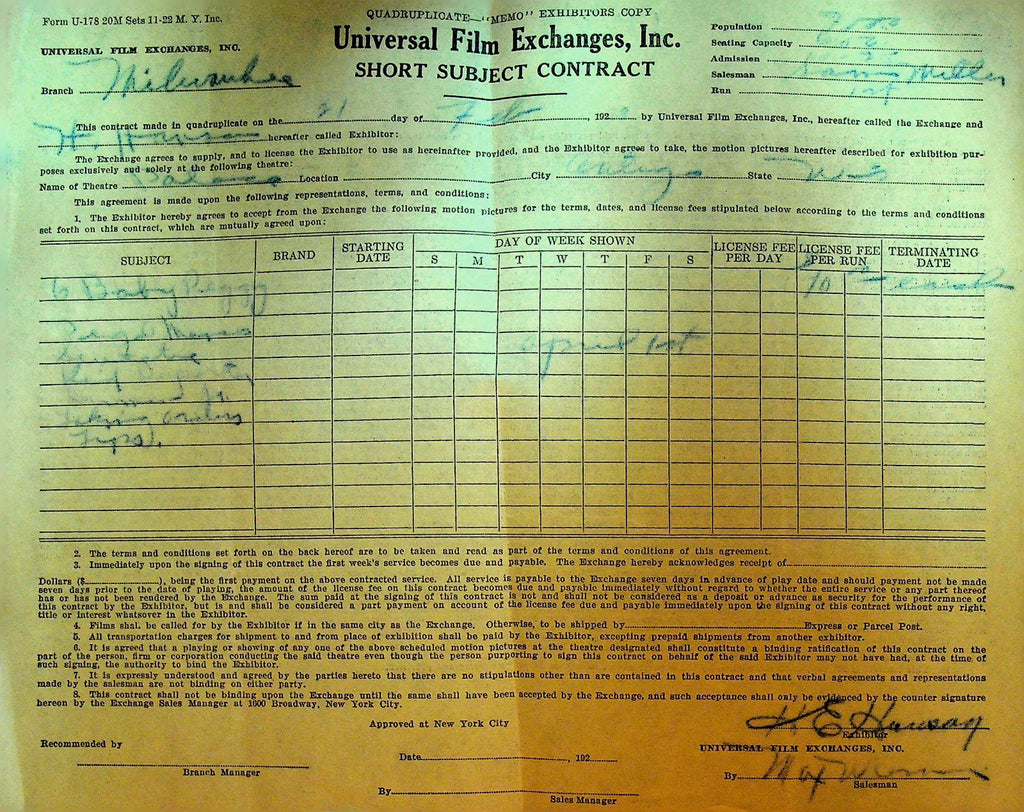 Form U-178 20M Sets 11-22 M. Y. Inc.
QUADRUPLICATE—"MEMO" EXHIBITORS COPY
UNIVERSAL FILM EXCHANGES, INC.
Universal Film Exchanges, Inc.
SHORT SUBJECT CONTRACT
Branch Milwaukee
Population
Seating Capacity
Admission
Salesman Miller
Run 1st
This contract made in quadruplicate on the 21 day of Feb , 192 by Universal Film Exchanges, Inc., hereafter called the Exchange and
H. Hanson hereafter called Exhibitor:
The Exchange agrees to supply, and to license the Exhibitor to use as hereinafter provided, and the Exhibitor agrees to take, the motion pictures hereafter described for exhibition pur-
poses exclusively and solely at the following theatre:
Name of Theatre Location City Antigo State Wis
This agreement is made upon the following representations, terms, and conditions:
1. The Exhibitor hereby agrees to accept from the Exchange the following motion pictures for the terms, dates, and license fees stipulated below according to the terms and conditions
set forth on this contract, which are mutually agreed upon:
SUBJECT BRAND STARTING DATE DAY OF WEEK SHOWN LICENSE FEE PER DAY LICENSE FEE PER RUN TERMINATING DATE
S M T W T F S
6 Baby Peggy 10 each
April 1st
2. The terms and conditions set forth on the back hereof are to be taken and read as part of the terms and conditions of this agreement.
3. Immediately upon the signing of this contract the first week's service becomes due and payable. The Exchange hereby acknowledges receipt of
Dollars ($ ), being the first payment on the above contracted service. All service is payable to the Exchange seven days in advance of play date and should payment not be made
seven days prior to the date of playing, the amount of the license fee on this contract becomes due and payable immediately without regard to whether the entire service or any part thereof
has or has not been rendered by the Exchange. The sum paid at the signing of this contract is not and shall not be considered as a deposit or advance as security for the performance of
this contract by the Exhibitor, but is and shall be considered a part payment on account of the license fee due and payable immediately upon the signing of this contract without any right,
title or interest whatsoever in the Exhibitor.
4. Films shal. be called for by the Exhibitor if in the same city as the Exchange. Otherwise, to be shipped by Express or Parcel Post.
5. All transportation charges for shipment to and from place of exhibition shall be paid by the Exhibitor, excepting prepaid shipments from another exhibitor.
6. It is agreed that a playing or showing of any one of the above scheduled motion pictures at the theatre designated shall constitute a binding ratification of this contract on the
part of the person, firm or corporation conducting the said theatre even though the person purporting to sign this contract on behalf of the said Exhibitor may not have had, at the time of
such signing, the authority to bind the Exhibitor.
7. It is expressly understood and agreed by the parties hereto that there are no stipulations other than are contained in this contract and that verbal agreements and representations
made by the salesman are not binding on either party.
8. This contract shall not be binding upon the Exchange until the same shall have been accepted by the Exchange, and such acceptance shall only be evidenced by the counter signature
hereon by the Exchange Sales Manager at 1600 Broadway, New York City.
Approved at New York City
H E Hanson
Exhibitor
Recommended by
UNIVERSAL FILM EXCHANGES, INC.
Date , 192
Branch Manager
By
Salesman
By
Sales Manager